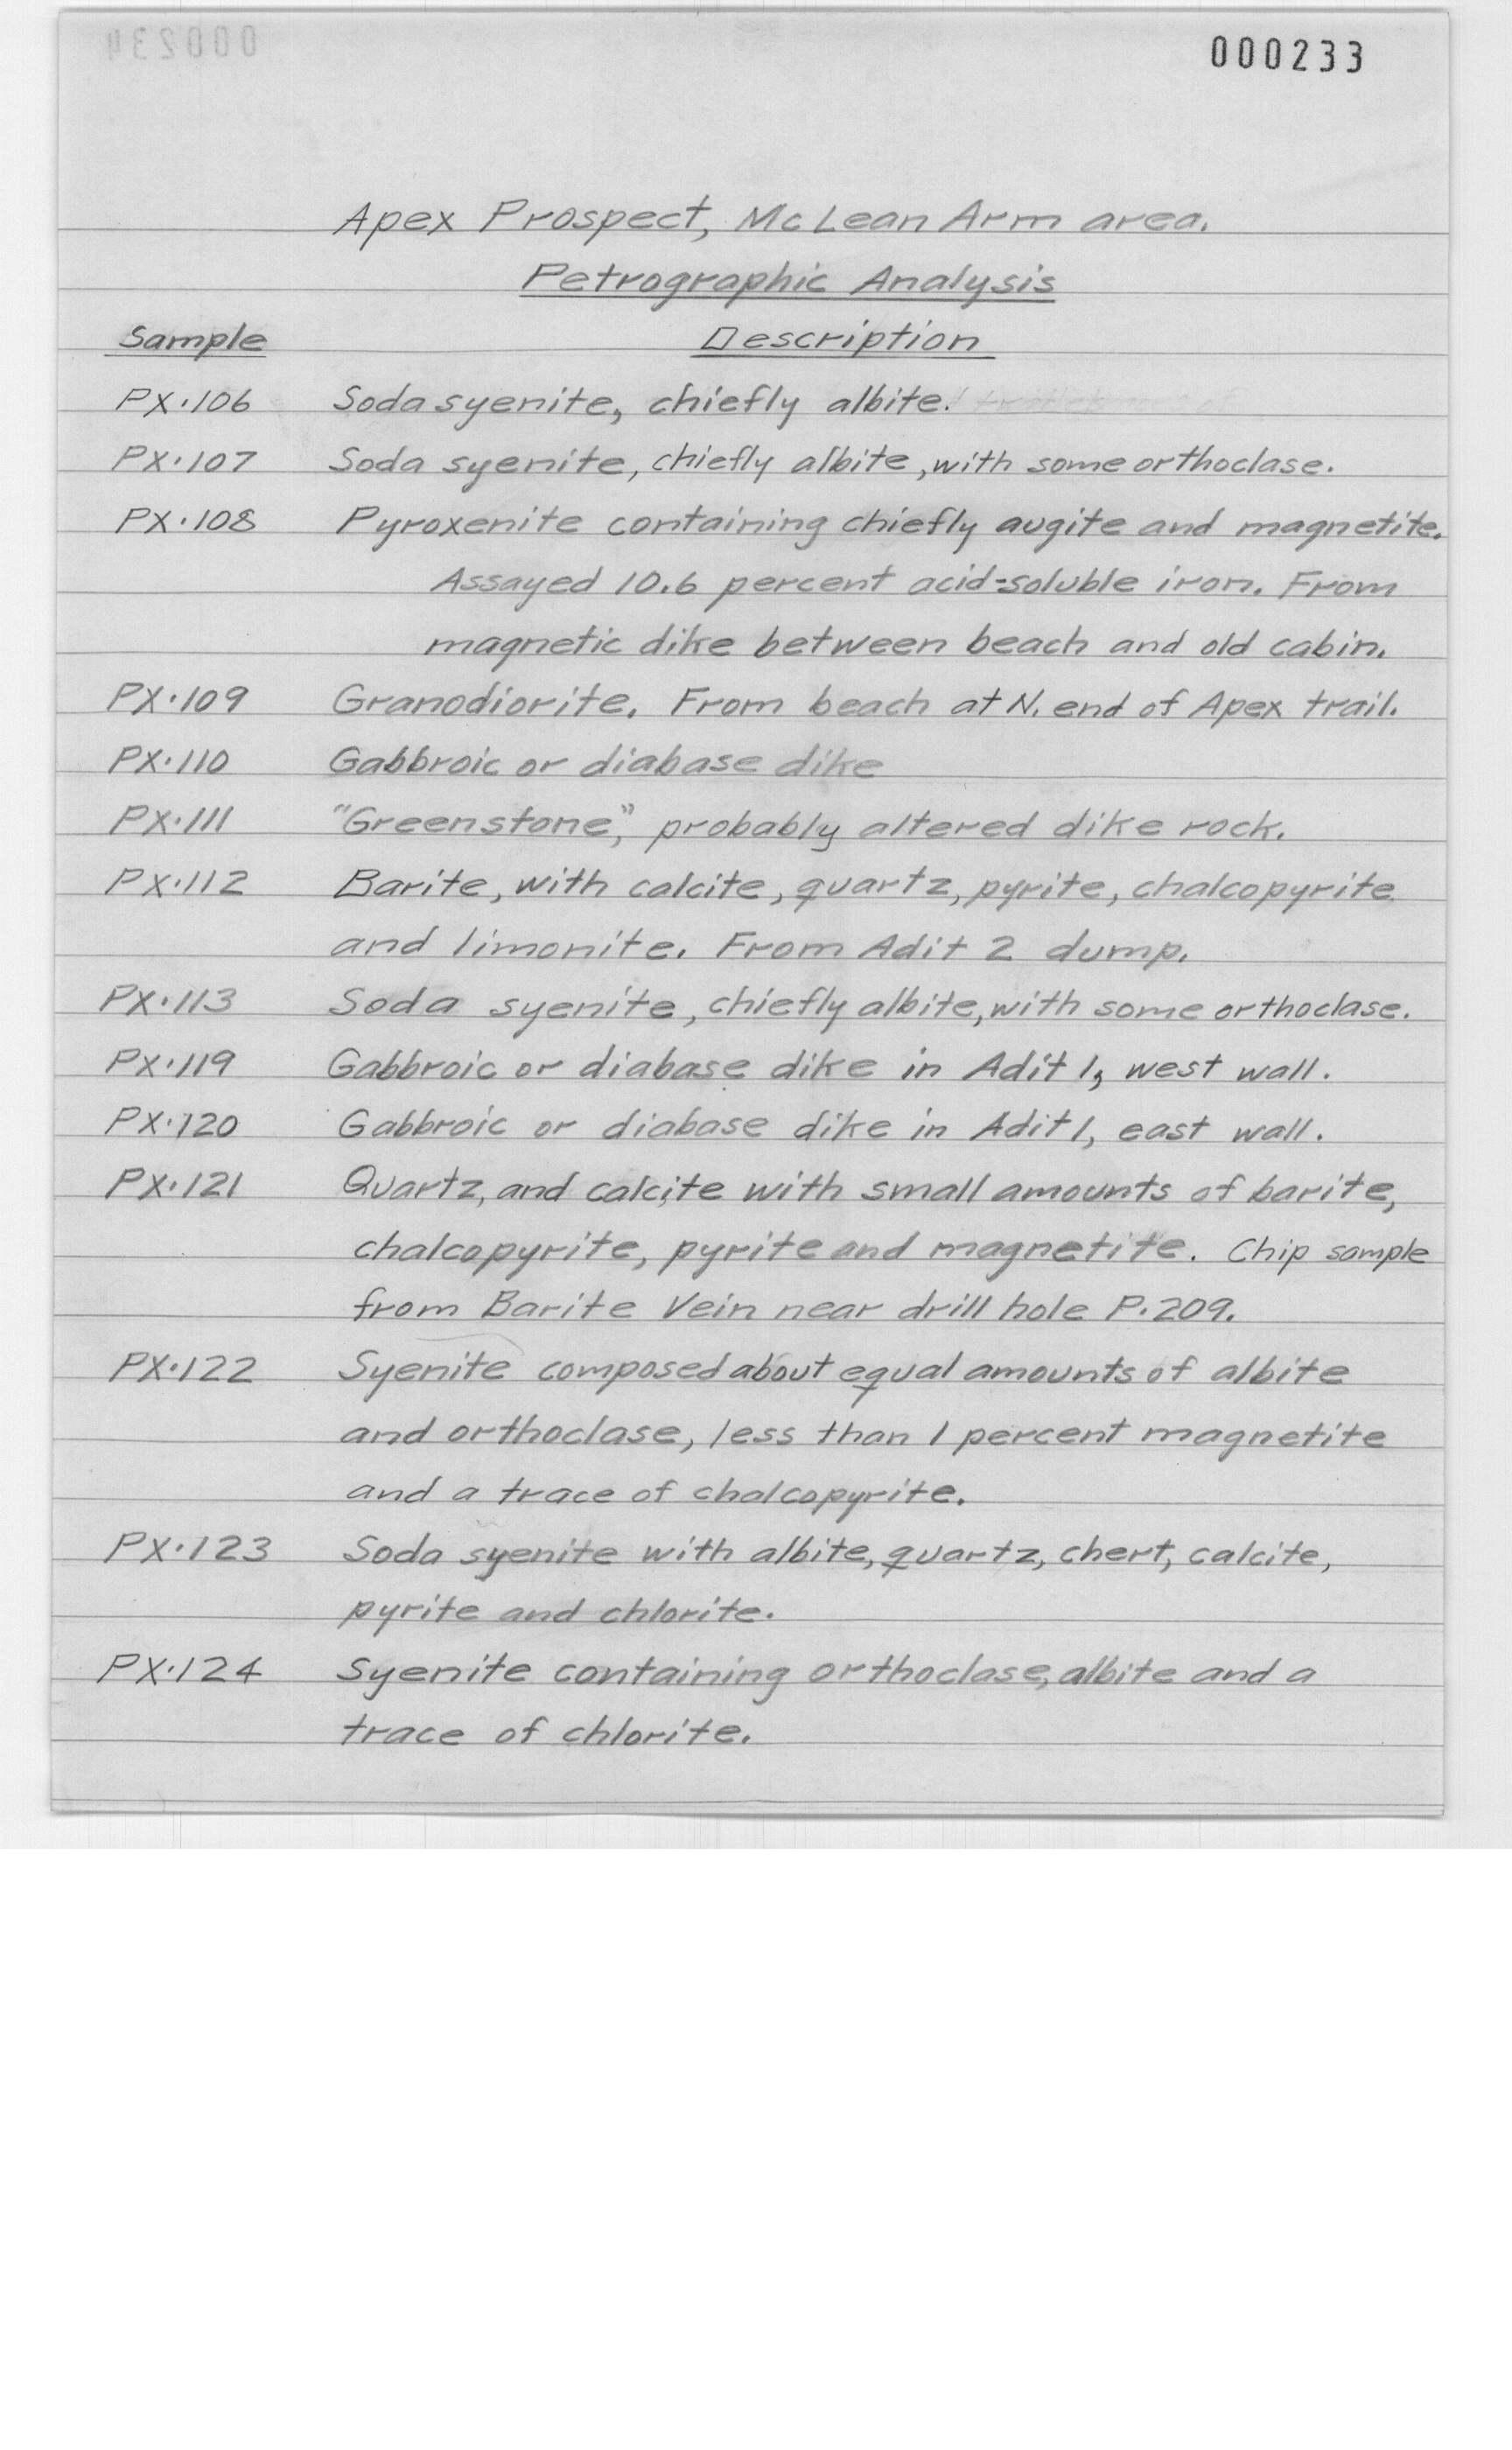 000233
Apex Prospect, McLean Arm area.
Petrographic Analysis
Sample Description
PX·106 Soda syenite, chiefly albite.
PX·107 Soda syenite, chiefly albite, with some orthoclase.
PX·108 Pyroxenite containing chiefly augite and magnetite.
Assayed 10.6 percent acid-soluble iron. From
magnetic dike between beach and old cabin.
PX·109 Granodiorite. From beach at N. end of Apex trail.
PX·110 Gabbroic or diabase dike
PX·111 "Greenstone," probably altered dike rock.
PX·112 Barite, with calcite, quartz, pyrite, chalcopyrite
and limonite. From Adit 2 dump.
PX·113 Soda syenite, chiefly albite, with some orthoclase.
PX·119 Gabbroic or diabase dike in Adit 1, west wall.
PX·120 Gabbroic or diabase dike in Adit 1, east wall.
PX·121 Quartz, and calcite with small amounts of barite,
chalcopyrite, pyrite and magnetite. Chip sample
from Barite Vein near drill hole P·209.
PX·122 Syenite composed about equal amounts of albite
and orthoclase, less than 1 percent magnetite
and a trace of chalcopyrite.
PX·123 Soda syenite with albite, quartz, chert, calcite,
pyrite and chlorite.
PX·124 Syenite containing orthoclase, albite and a
trace of chlorite.